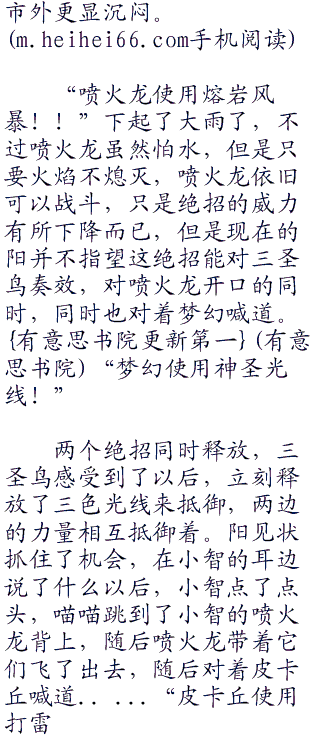 市外更显沉闷。
(m.heihei66.com手机阅读)
“喷火龙使用熔岩风
暴！！”下起了大雨了，不
过喷火龙虽然怕水，但是只
要火焰不熄灭，喷火龙依旧
可以战斗，只是绝招的威力
有所下降而已，但是现在的
阳并不指望这绝招能对三圣
鸟奏效，对喷火龙开口的同
时，同时也对着梦幻喊道。
{有意思书院更新第一}(有意
思书院)“梦幻使用神圣光
线！”
两个绝招同时释放，三
圣鸟感受到了以后，立刻释
放了三色光线来抵御，两边
的力量相互抵御着。阳见状
抓住了机会，在小智的耳边
说了什么以后，小智点了点
头，喵喵跳到了小智的喷火
龙背上，随后喷火龙带着它
们飞了出去，随后对着皮卡
丘喊道．．．．．“皮卡丘使用
打雷